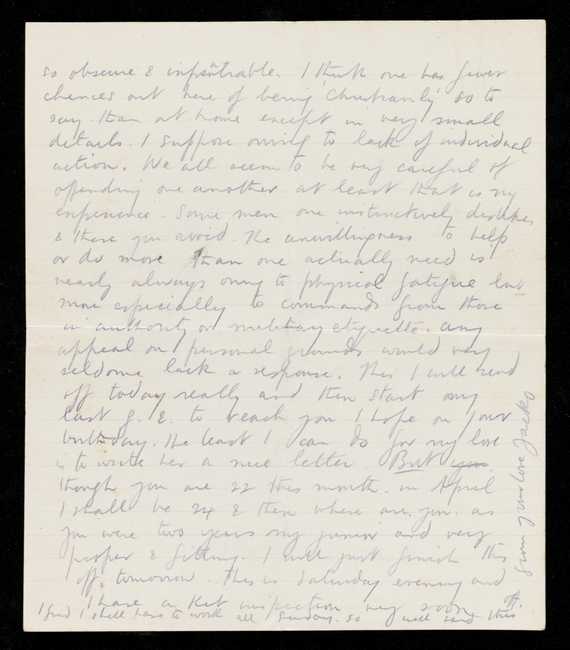 so obscure & impenetrable. I think one has fewer
chances out here of being Christianly so to
say than at home except in very small
details. I suppose owing to lack of individual
action. We all seem to be very careful of
offending one another at least that is my
experience. Some men one instinctively dislikes
& these you avoid. The unwillingness to help
or do more than one actually need is
nearly always owing to physical fatigue but
more especially to commands from those
in authority or military etiquette. Any
appeal on personal grounds would very
seldome lack a response. This I will send
off today really and then start my
last G. E. to reach you I hope on your
birthday. The least I can do for my love
is to write her a nice letter. But
though you are 22 this month. in April
I shall be 24 & then where are you. as
you were two years my junior and very
proper & fitting. I will just finish this
off tomorrow. This is Saturday evening and
I have a Kit inspection very soon
I find I shall have to work all Sunday. so will send this
off.
from your love Jacko